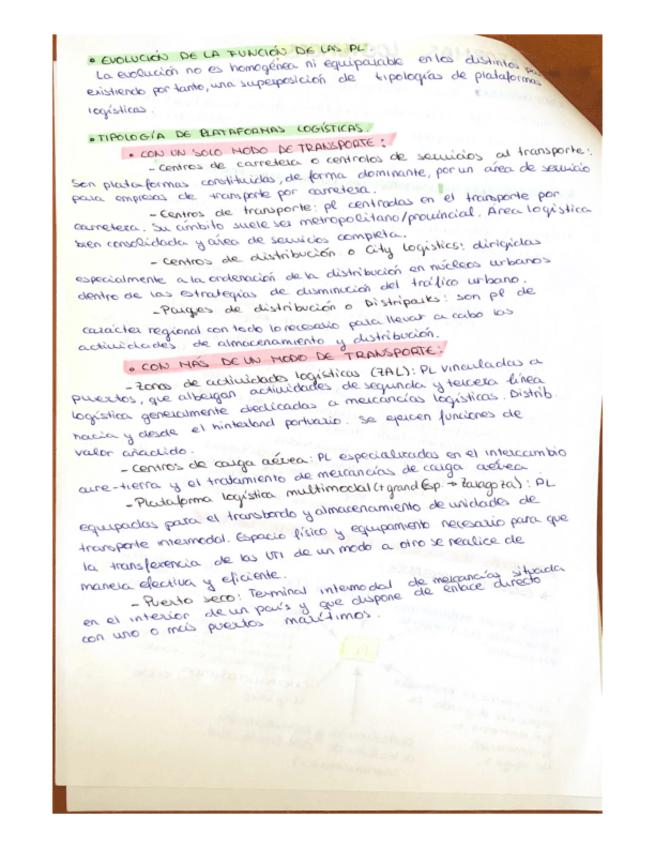 • EVOLUCIÓN DE LA FUNCIÓN DE LAS PL
La evolución no es homogénea ni equiparable en los distintos
existiendo por tanto, una superposición de tipologías de plataformas
logísticas.
• TIPOLOGÍA DE PLATAFORMAS LOGÍSTICAS.
• CON UN SOLO MODO DE TRANSPORTE:
- Centros de carretera o centrolos de servicios al transporte:
Son plataformas constituidas, de forma dominante, por un área de servicio
para empresas de transporte por carretera.
- Centros de transporte: pl centradas en el transporte por
carretera. Su ámbito suele ser metropolitano/provincial. Area logística
bien consolidada y área de servicios completa.
- Centros de distribución o City Logistics: dirigidas
especialmente a la ordenación de la distribución en núcleos urbanos
dentro de las estrategias de disminución del tráfico urbano.
- Parques de distribución o Distriparks: son pl de
carácter regional con todo lo necesario para llevar a cabo las
actividades de almacenamiento y distribución.
• CON MÁS DE UN MODO DE TRANSPORTE:
- Zonas de actividades logísticas (ZAL): PL vinculadas a
puertos, que albergan actividades de segunda y tercera línea
logística generalmente dedicadas a mercancías logísticas. Distrib.
hacia y desde el hinterland portuario. Se ejercen funciones de
valor añadido.
- Centros de carga aérea: PL especializadas en el intercambio
aire-tierra y el tratamiento de mercancías de carga aérea
- Plataforma logística multimodal (+ grand Esp. → Zaragoza): PL
equipadas para el transbordo y almacenamiento de unidades de
transporte intermodal. Espacio físico y equipamento necesario para que
la transferencia de las UTI de un modo a otro se realice de
manera efectiva y eficiente.
- Puerto seco: Terminal intermodal de mercancías situada
en el interior de un país y que dispone de enlace directo
con uno o más puertos marítimos.